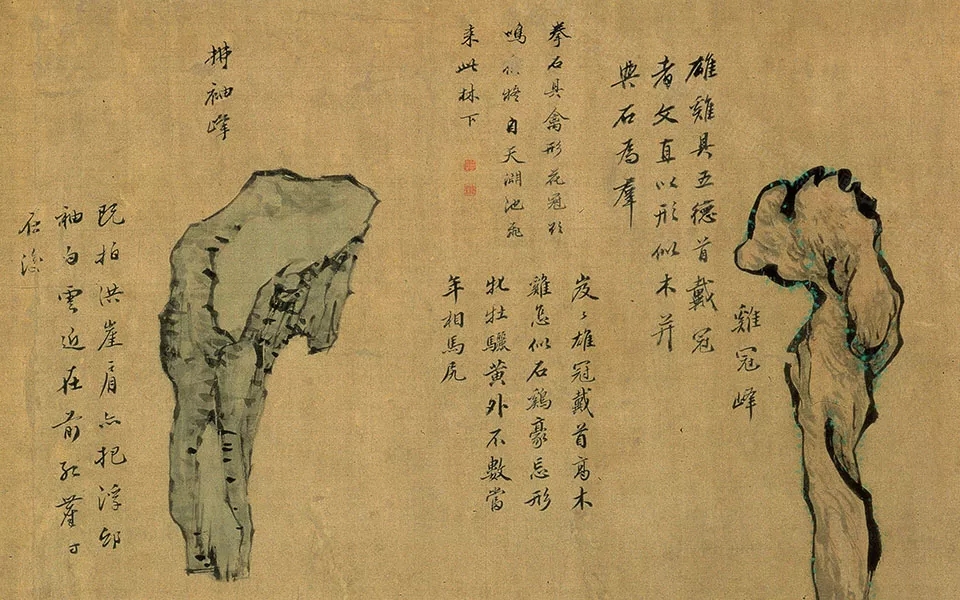 雞冠峰
雄雞具五德首戴冠
者文直以形似木并
與石為羣
拳石具禽形花冠
鳴 自天湖池飛
來此林下
岌〻雄冠戴首高木
雞怎似石鷄豪忘形
牝牡驪黃外不數當
年相馬
袖峰
既拍洪崖肩亦把浮邱
袖白雲近在前